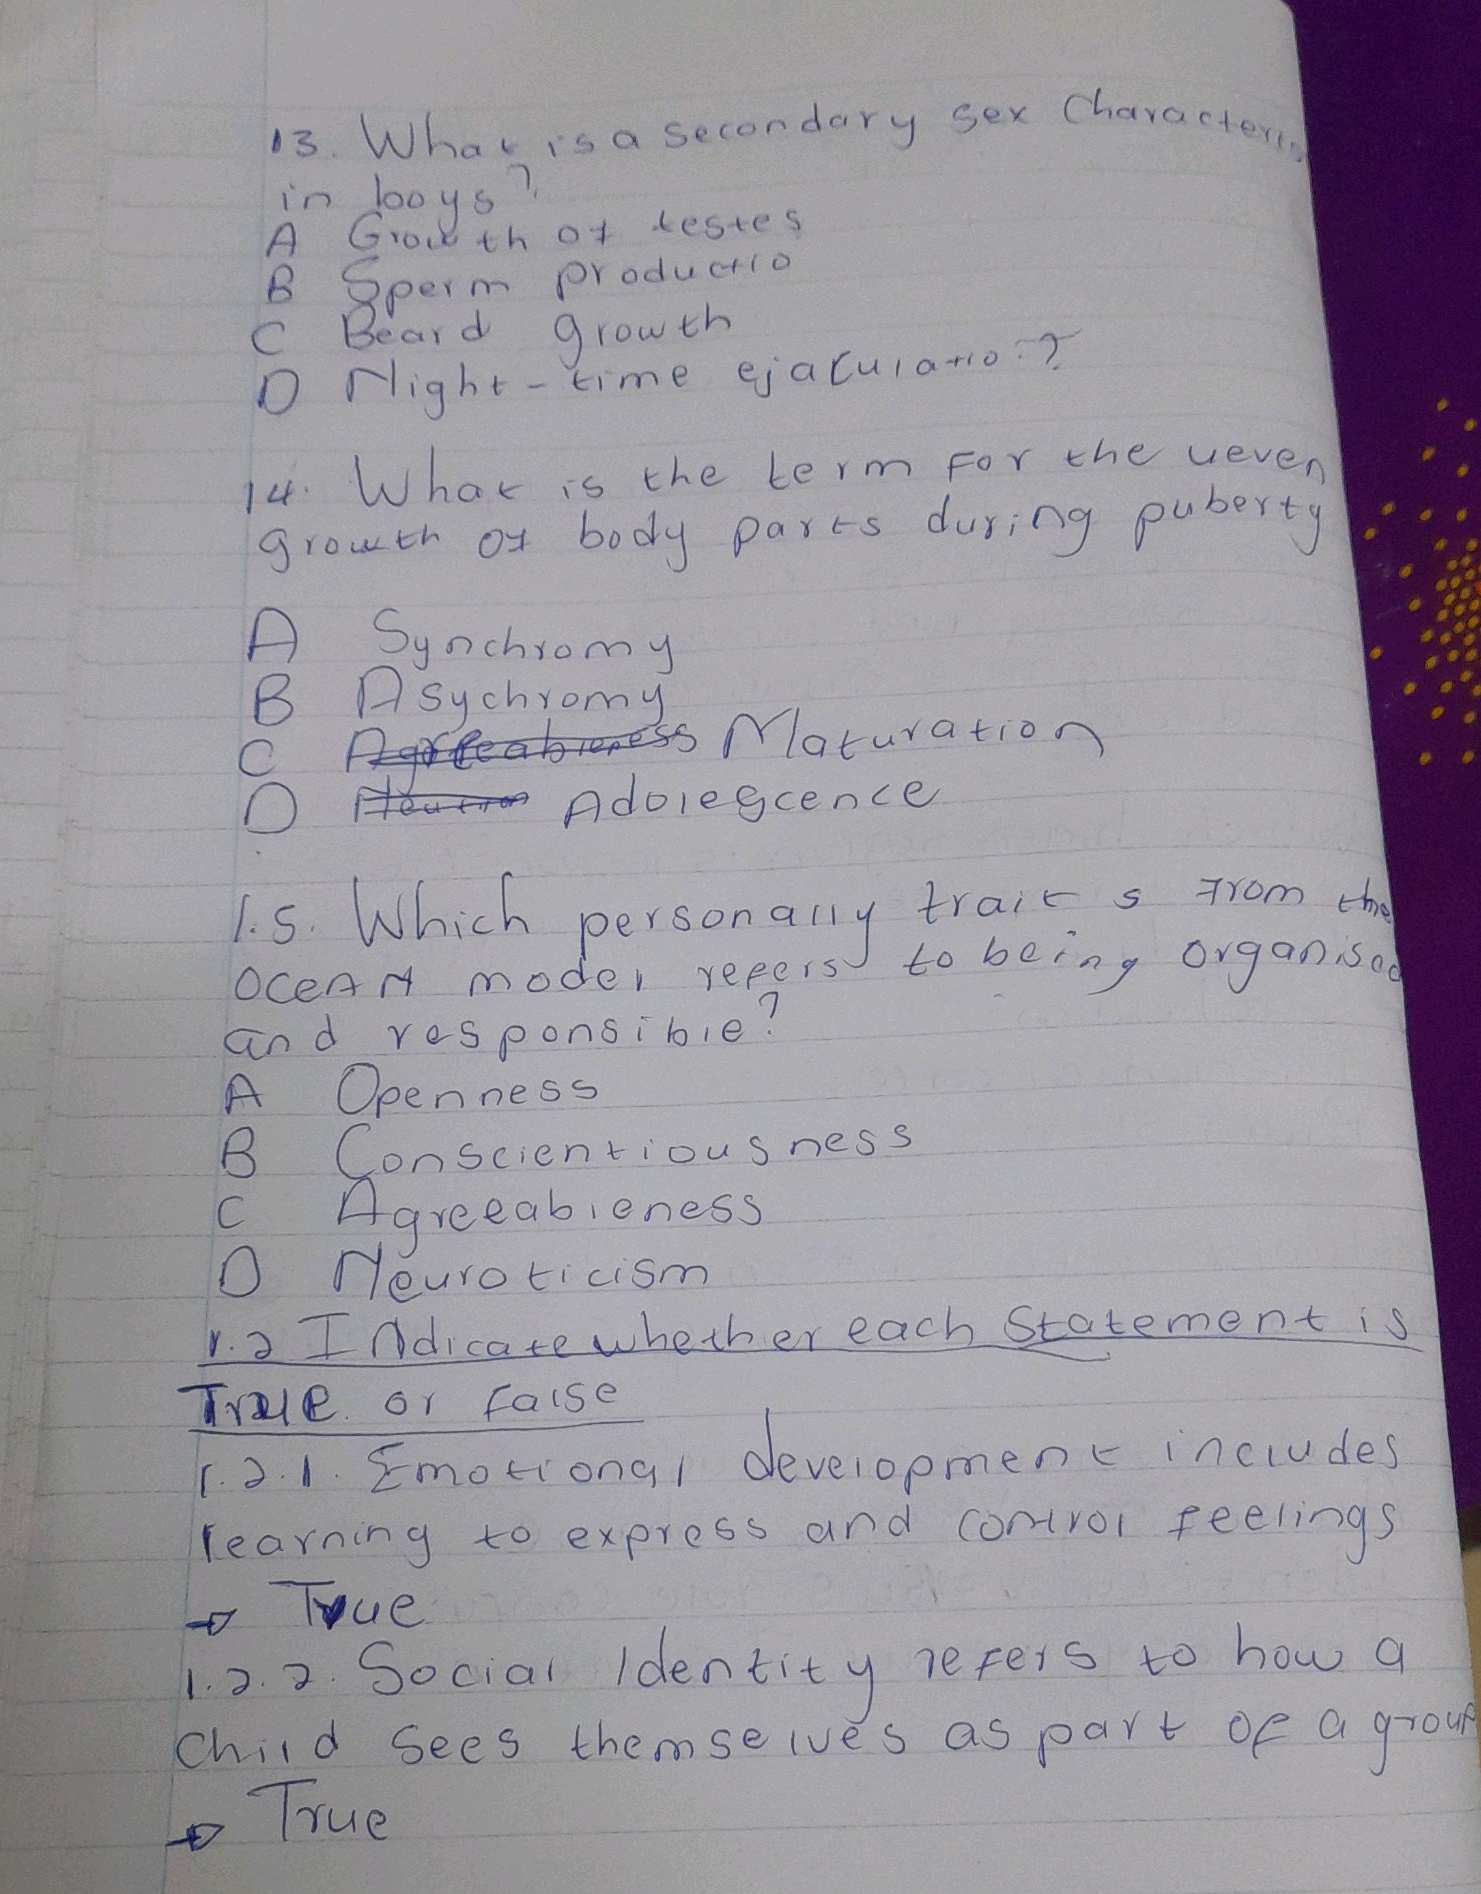 13. What is a secondary sex Characteris
in boys?
A Growth of testes
B Sperm productio
C Beard growth
D Night-time ejaculatio?
14. What is the term For the ueven
growth of body parts during puberty
A Synchromy
B Asychromy
C Agreeableness Maturation
D Adolescence
1.5. Which personally traits from the
OCEAN model refers to being organised
and responsible?
A Openness
B Conscientiousness
C Agreeableness
D Neuroticism
1.2 Indicate whether each Statement is
True or False
1.2.1. Emotional development includes
learning to express and control feelings
→ True
1.2.2. Social Identity refers to how a
child sees themselves as part of a group
→ True